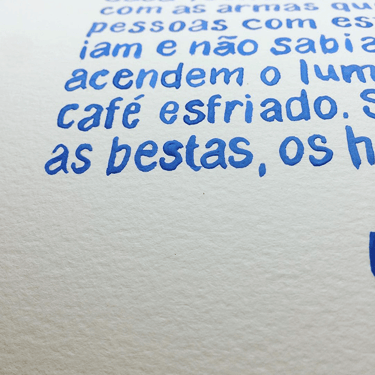 com as armas qu
pessoas com es
iam e não sabia
acendem o lum
café esfriado. S
as bestas, os h